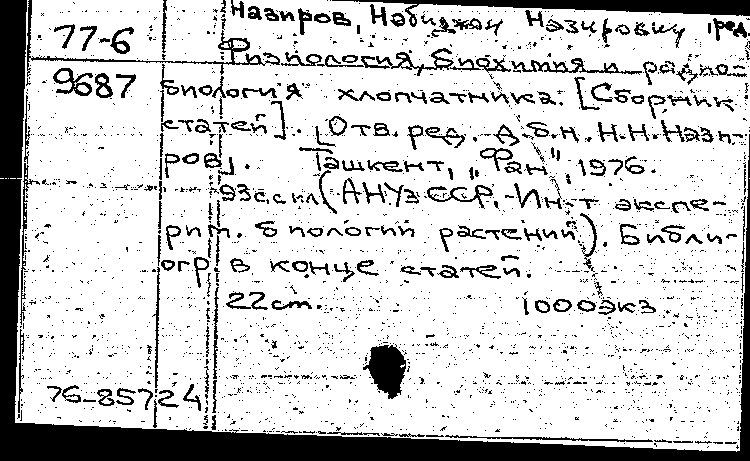 Назиров, Набиджон Назирович, ред.
77-6
Физиология, биохимия и радио-
9687
биология хлопчатника. [Сборник
статей]. [Отв. ред. д.б.н. Н.Н. Нази-
ров]. Ташкент, „Фан", 1976.
93 с. с ил. (АН УзССР. Ин-т экспе-
рим. биологии растений). Библи-
огр. в конце статей.
22 см. 1000 экз.
76-85724